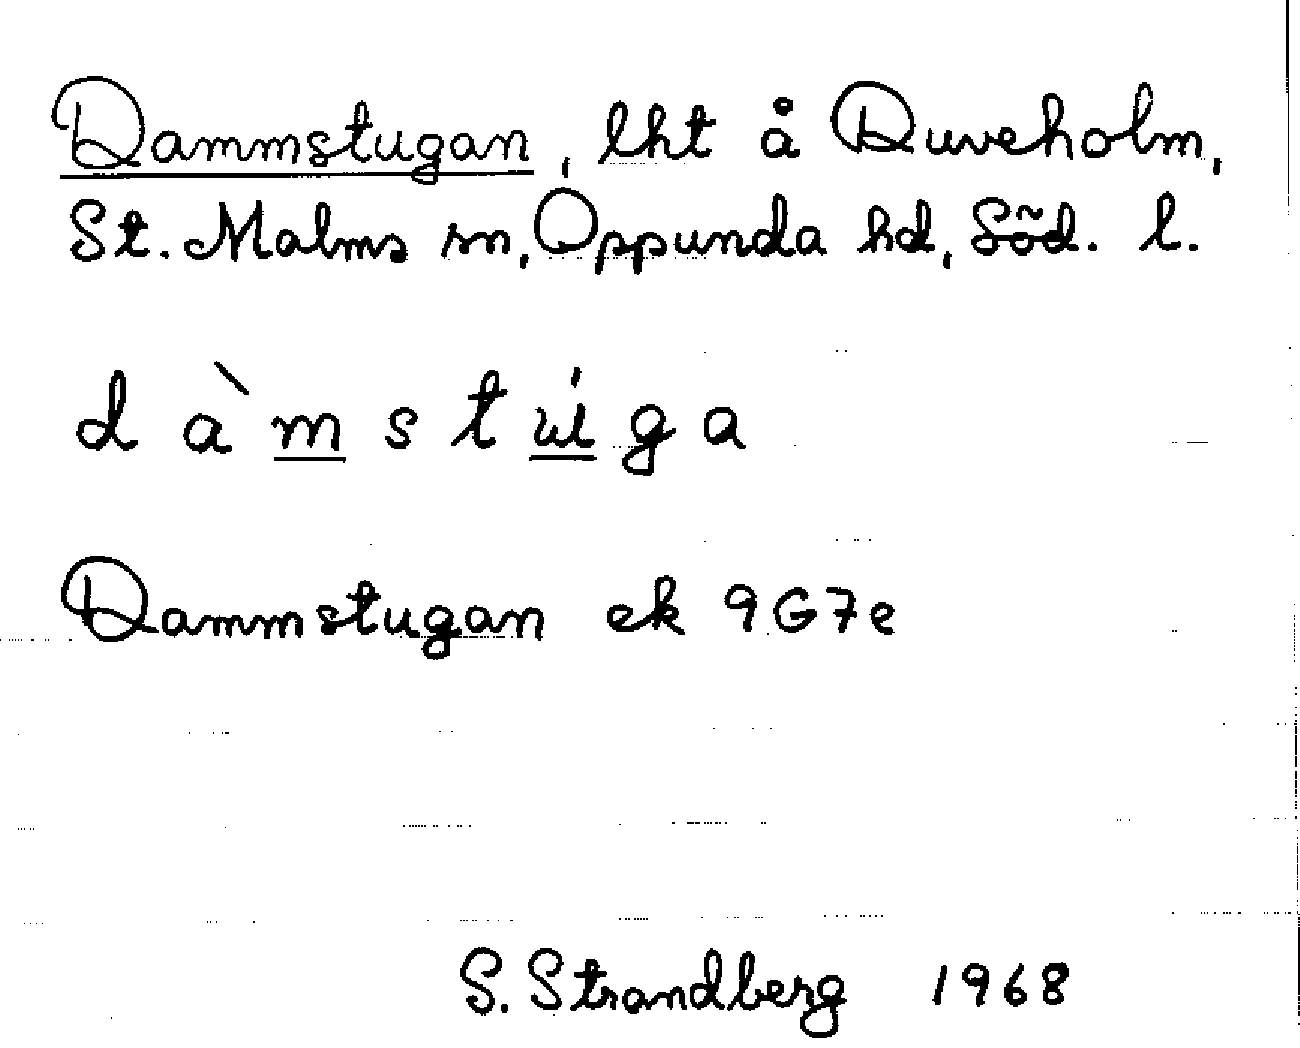 Dammstugan, lht å Duveholm,
St. Malms sn, Oppunda hd, Söd. l.
dàmstúga
Dammstugan ek 9G7e
S. Strandberg 1968